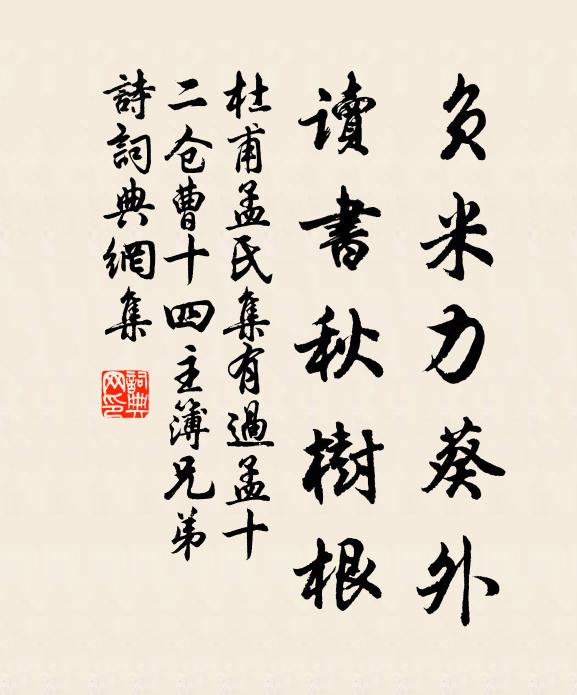 負米力葵外
讀書秋樹根
杜甫孟氏集有過孟十
二仓曹十四主簿兄弟
詩詞典網集
詞典
网印